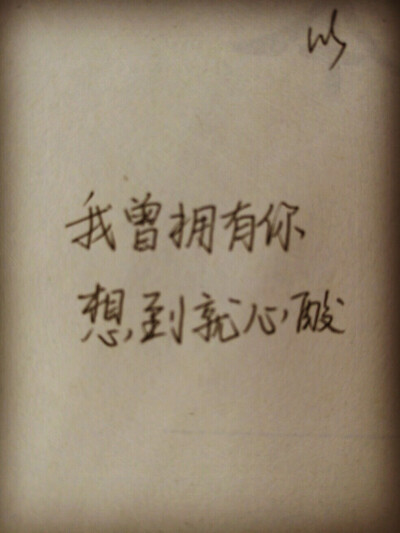 以
我曾拥有你
想到就心酸